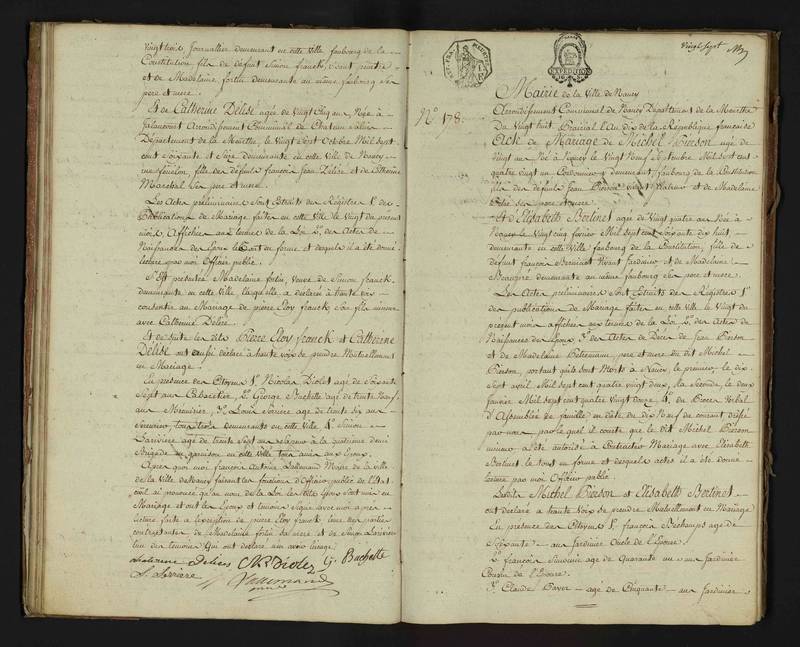 vingt trois, Journallier demeurant en cette Ville faubourg de la
Constitution fils de défunt Simon franck, vivant peintre
et de Madelaine fortin demeurante au même faubourg Ses
pere et mere.
Et de Catherine Delise agée de Vingt Cinq ans, Née à
Jalaucourt Arrondissement Communal de Chateau Salins
Département de la Meurthe, le vingt Octobre Mil Sept
cent Soixante et Seize demeurante en cette Ville de Nancy
rue fenelon, fille des défunts françois Jean Delise et de Catherine
Marechal Ses pere et mere.
Les Actes preliminaires sont Extraits des Registres 1° des
Publications de Mariage faites en cette Ville le vingt du present
mois, Affichées aux termes de la Loi 2° des Actes de
Naissances des Epoux le tout en forme et desquels il a été donné
lecture par moi Officier public.
S'est présentée Madelaine fortin, Veuve de Simon franck
demeurante en cette Ville laquelle a déclaré à haute voix
consentir au Mariage de pierre Eloy franck, Son fils mineur
avec Catherine Delise.
Et de suite les dits Pierre Eloy franck et Catherine
Delise ont aussi déclaré à haute voix se prendre Mutuellement
en Mariage.
En presence des Citoyens 1° Nicolas Diolet agé de Soixante
Sept ans Cabaretier, 2° George Buchette agé de trente Neuf
ans Menuisier, 3° Louis Larriere agé de trente Six ans
Serrurier, tous trois demeurants en cette Ville 4° Simon
Lariviere agé de trente Sept ans à la quatrieme demi
Brigade en garnison en cette Ville tous amis aux Epoux.
Après quoi moi françois Antoine Lallemand Maire de la ville
de la Ville de Nancy faisant les fonctions d'Officier public de l'Etat
civil ai prononcé qu'au nom de la Loi les dits Epoux sont unis en
Mariage et ont les Epoux et temoins Signé avec moi après
lecture faite à l'exception de pierre Eloy franck l'une des parties
contractantes, de Madelaine fortin Sa mere et de Simon Lariviere
l'un des temoins Qui ont déclaré n'en avoir l'usage.
Catherine Delise CN Diolez G. Buchette
L. Larriere Lallemand
Vingt Sept
Mairie de la Ville de Nancy
N° 178.
Arrondissement Communal de Nancy Département de la Meurthe
Du Vingt huit Prairial l'An dix de la République française
Acte de Mariage de Michel Pierson agé de
Vingt un Né à Nancy le Vingt Neuf Septembre Mil Sept cent
quatre vingt un Cordonnier y demeurant, faubourg de la Constitution
fils des défunts Jean Pierson vivant et de Madelaine
Ses pere et mere.
Et d'Elisabeth Bertinet agée de Vingt quatre ans Née à
Nancy le Vingt cinq fevrier Mil Sept cent Soixante dix huit,
demeurante en cette Ville faubourg de la Constitution, fille de
defunt françois Bertinet Vivant Jardinier et de Madelaine
Beaupré demeurante au même faubourg Ses pere et mere.
Les Actes preliminaires sont Extraits des Registres 1°
des publications de Mariage faites en cette Ville le Vingt du
present mois affichées aux termes de la Loi 2° des Actes de
Naissances des Epoux 3° des Actes de Décès de Jean Pierson
et de Madelaine pere et mere du dit Michel
Pierson, portant qu'ils sont Morts à Nancy, le premier, le dix
Sept avril Mil Sept cent quatre vingt deux, la Seconde, le deux
Janvier Mil Sept cent quatre Vingt douze 4° du Proces Verbal
d'Assemblée de famille en date du dix Neuf du courant dressé
par-nous, par lequel il conste que le dit Michel Pierson
mineur a été autorisé à Contracter Mariage avec Elisabeth
Bertinet le tout en forme et desquels actes il a été donné
lecture par moi Officier public.
Lesdits Michel Pierson et Elisabeth Bertinet
ont déclaré à haute Voix se prendre Mutuellement en Mariage
En presence des Citoyens 1° françois Bechamps agé de
Soixante ans Jardinier Oncle de l'Epouse.
2° françois agé de Quarante un ans Jardinier
Cousin de l'Epouse.
3° Claude Bayer agé de Cinquante ans Jardinier